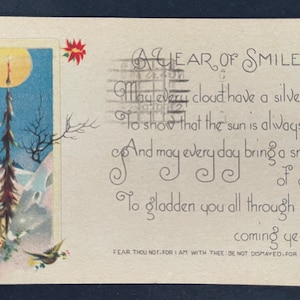 A YEAR OF SMILE
May every cloud have a silve
To show that the sun is always
And may every day bring a sm
of
To gladden you all through
coming ye
FEAR THOU NOT: FOR I AM WITH THEE: BE NOT DISMAYED: FOR